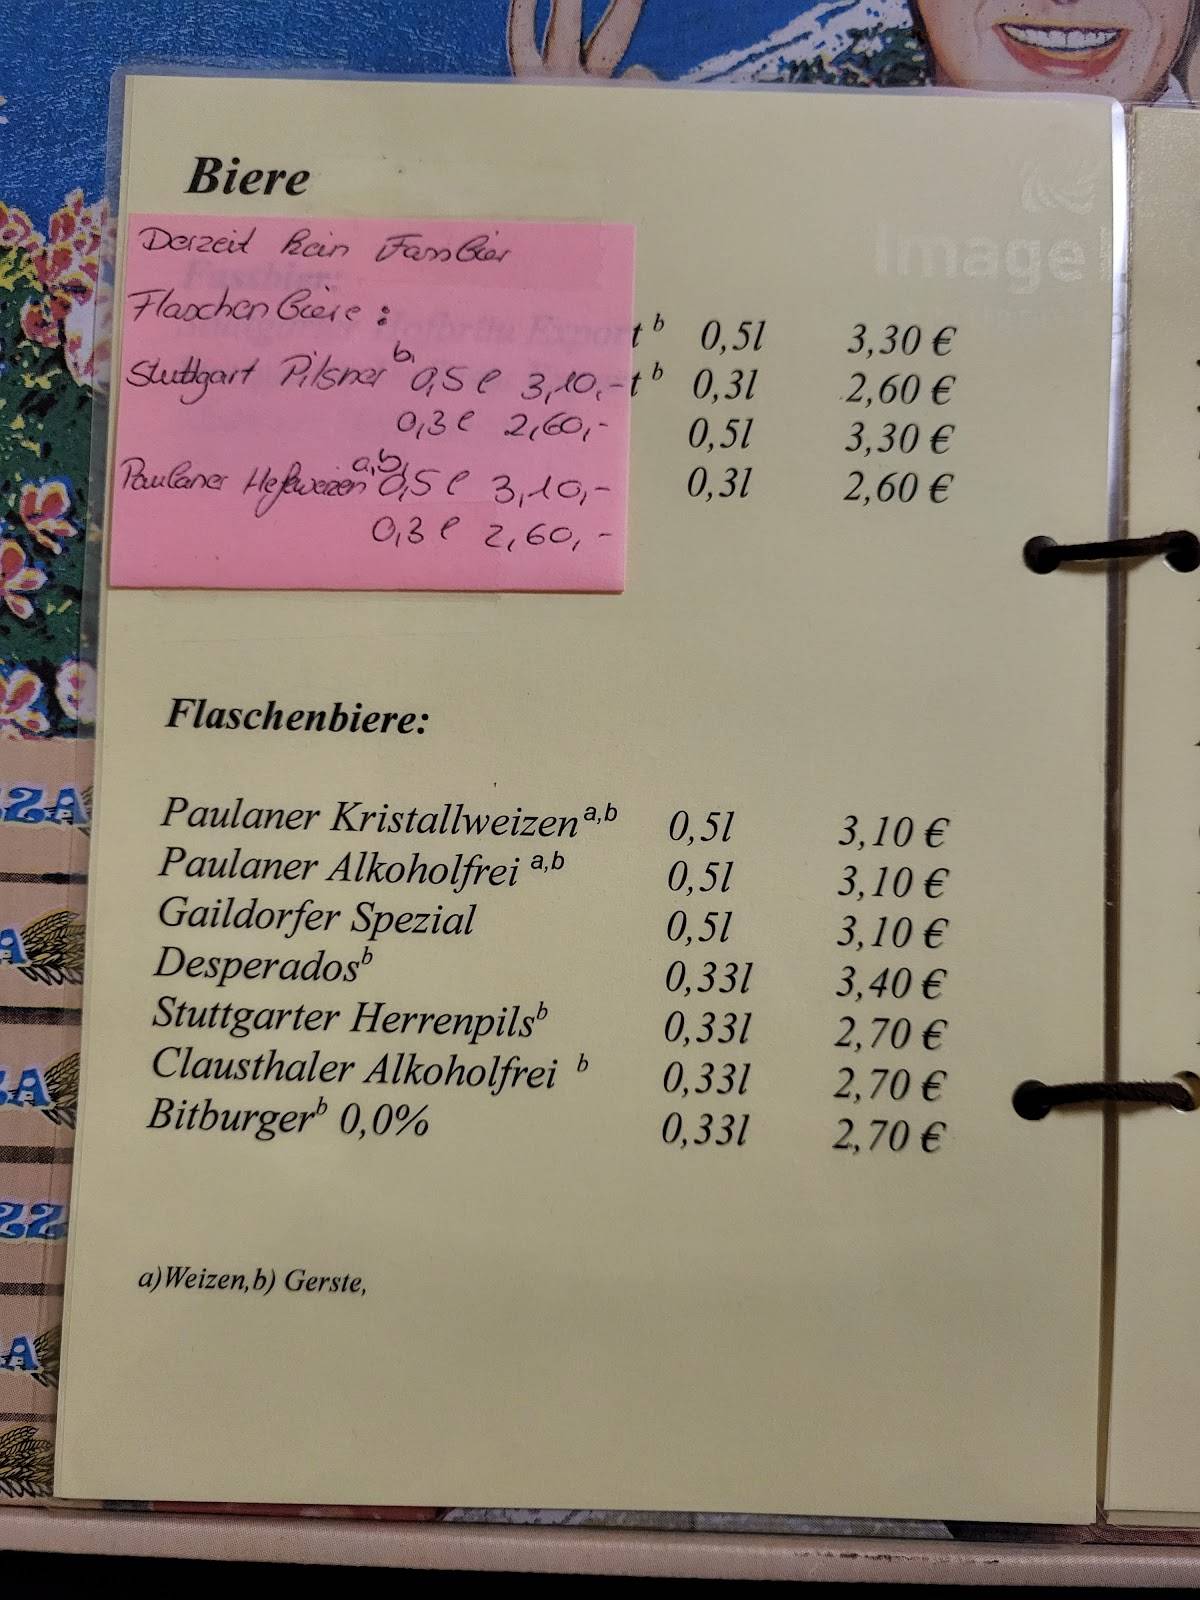 Biere
Derzeit kein Fassbier
Fassbier:
Flaschenbiere:
Hofbräu Export b 0,5l 3,30 €
Stuttgart Pilsner b, 0,5 l 3,10,-
t b 0,3l 2,60 €
0,3 l 2,60,-
0,5l 3,30 €
Paulaner Hefeweizen a,b, 0,5 l 3,10,-
0,3l 2,60 €
0,3 l 2,60,-
Flaschenbiere:
Paulaner Kristallweizen a,b 0,5l 3,10 €
Paulaner Alkoholfrei a,b 0,5l 3,10 €
Gaildorfer Spezial 0,5l 3,10 €
Desperados b 0,33l 3,40 €
Stuttgarter Herrenpils b 0,33l 2,70 €
Clausthaler Alkoholfrei b 0,33l 2,70 €
Bitburger b 0,0% 0,33l 2,70 €
a)Weizen,b) Gerste,
Image
ZZA
A
ZA
ZZ
A